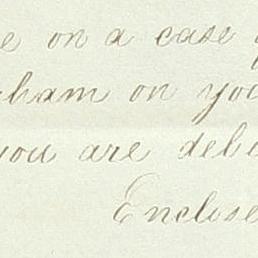 e on a case
ham on you
you are deb
Enclose